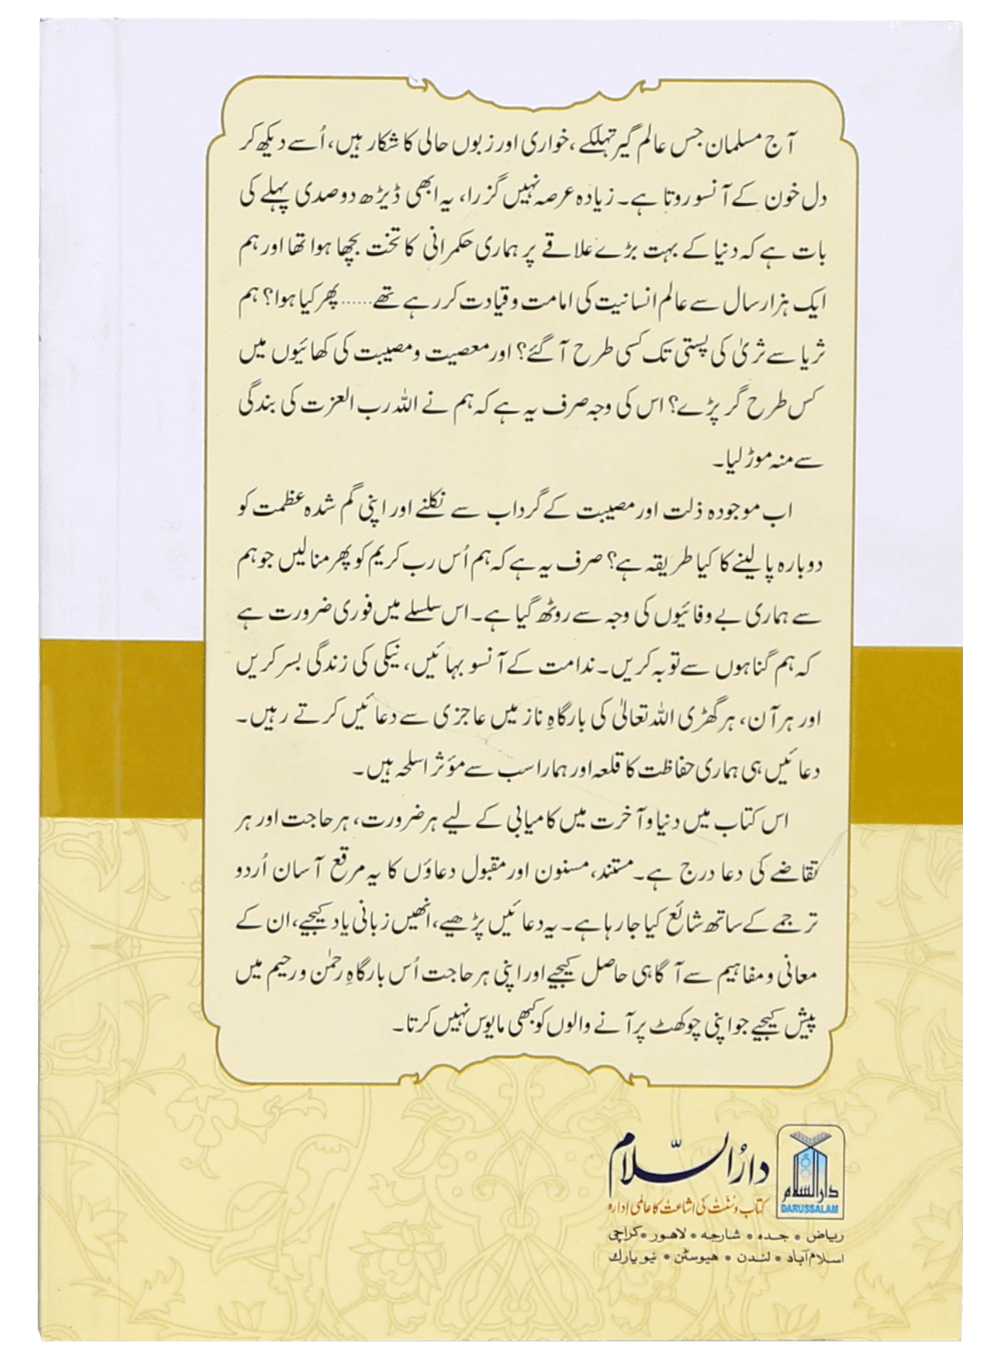 آج مسلمان جس عالم گیر تہلکے، خواری اور زبوں حالی کا شکار ہیں، اُسے دیکھ کر
دل خون کے آنسو روتا ہے۔ زیادہ عرصہ نہیں گزرا، یہ ابھی ڈیڑھ دو صدی پہلے کی
بات ہے کہ دنیا کے بہت بڑے علاقے پر ہماری حکمرانی کا تخت بچھا ہوا تھا اور ہم
ایک ہزار سال سے عالم انسانیت کی امامت و قیادت کر رہے تھے...... پھر کیا ہوا؟ ہم
ثریا سے ثریٰ کی پستی تک کسی طرح آ گئے؟ اور معصیت و مصیبت کی کھائیوں میں
کس طرح گر پڑے؟ اس کی وجہ صرف یہ ہے کہ ہم نے اللہ رب العزت کی بندگی
سے منہ موڑ لیا۔
اب موجودہ ذلت اور مصیبت کے گرداب سے نکلنے اور اپنی گم شدہ عظمت کو
دوبارہ پا لینے کا کیا طریقہ ہے؟ صرف یہ ہے کہ ہم اُس رب کریم کو پھر منا لیں جو ہم
سے ہماری بے وفائیوں کی وجہ سے روٹھ گیا ہے۔ اس سلسلے میں فوری ضرورت ہے
کہ ہم گناہوں سے توبہ کریں۔ ندامت کے آنسو بہائیں، نیکی کی زندگی بسر کریں
اور ہر آن، ہر گھڑی اللہ تعالیٰ کی بارگاہِ ناز میں عاجزی سے دعائیں کرتے رہیں۔
دعائیں ہی ہماری حفاظت کا قلعہ اور ہمارا سب سے مؤثر اسلحہ ہیں۔
اس کتاب میں دنیا و آخرت میں کامیابی کے لیے ہر ضرورت، ہر حاجت اور ہر
تقاضے کی دعا درج ہے۔ مستند، مسنون اور مقبول دعاؤں کا یہ مرقع آسان اُردو
ترجمے کے ساتھ شائع کیا جا رہا ہے۔ یہ دعائیں پڑھیے، انھیں زبانی یاد کیجیے، ان کے
معانی و مفاہیم سے آگاہی حاصل کیجیے اور اپنی ہر حاجت اُس بارگاہِ رحمٰن و رحیم میں
پیش کیجیے جو اپنی چوکھٹ پر آنے والوں کو کبھی مایوس نہیں کرتا۔
دارُالسّلام
دارالسلام
DARUSSALAM
کتاب و سُنّت کی اشاعت کا عالمی ادارہ
ریاض • جدہ • شارجہ • لاہور • کراچی
اسلام آباد • لندن • ھیوسٹن • نیو یارک